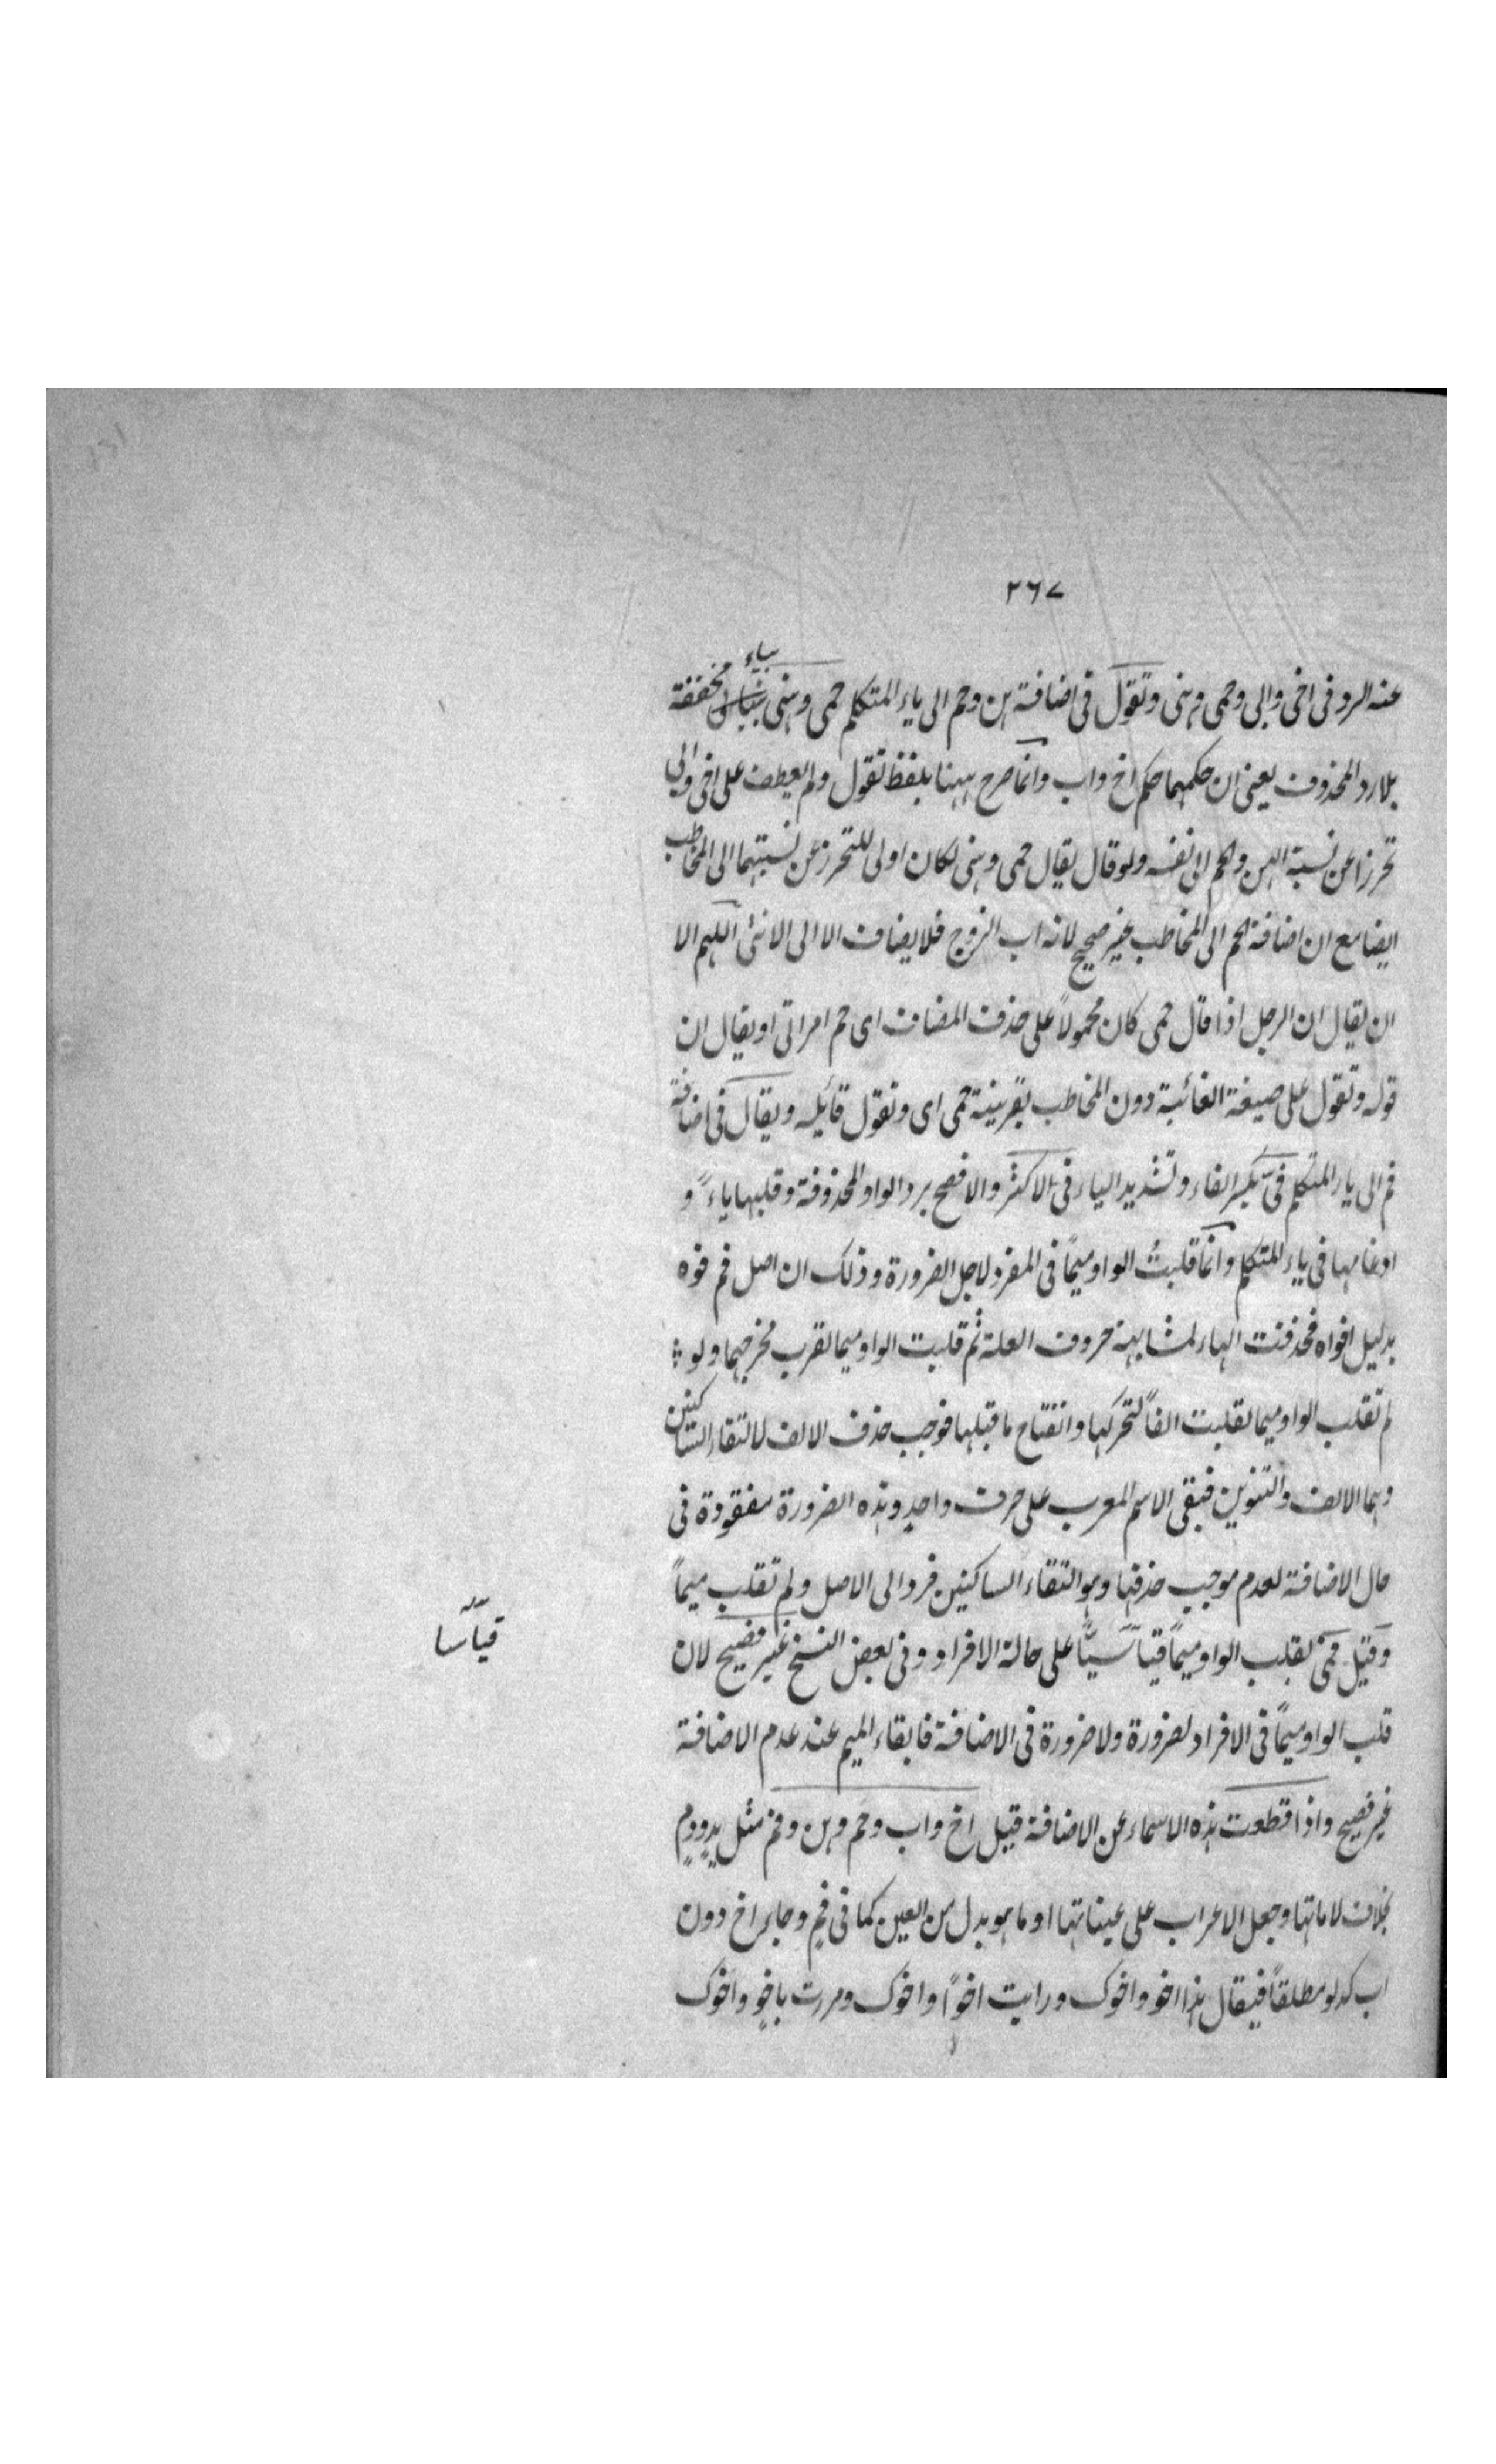 ٢٦٧
عنه الرد فى اخى وابى وحمى وهنى وتقول فى اضافة هن وحم الى ياء المتكلم حمى وهنى بياء مخففة
بلا رد المحذوف يعنى ان حكمهما حكم اخ واب وانما صرح ههنا بلفظ تقول ولم يعطف على اخى وابى
تحرزا عن نسبة الهن والحم الى نفسه ولو قال يقال حمى وهنى لكان اولى للتحرز عن نسبتهما الى المخاطب
ايضا مع ان اضافة الحم الى المخاطب غير صحيح لانه اب الزوج فلا يضاف الا الى الانثى اللهم الا
ان يقال ان الرجل اذا قال حمى كان محمولاً على حذف المضاف اى حم امراتى او يقال ان
قوله وتقول على صيغة الغائبة دون المخاطب بقرينة حمى اى وتقول قائله ويقال فى اضافة
فم الى ياء المتكلم فىّ بكسر الفاء وتشديد الياء فى الاكثر والافصح برد الواو المحذوفة وقلبها ياءً و
ادغامها فى ياء المتكلم وانما قلبت الواو ميماً فى المفرد لاجل الضرورة وذلك ان اصل فم فوه
بدليل افواه فحذفت الهاء لمشابهة حروف العلة ثم قلبت الواو ميما لقرب مخرجهما ولو
لم تقلب الواو ميما لقلبت الفاً لتحركها وانفتاح ما قبلها فوجب حذف الالف لالتقاء الساكنين
وهما الالف والتنوين فبقى الاسم المعرب على حرف واحدٍ وهذه الضرورة مفقودة فى
حال الاضافة لعدم موجب حذفها وهو التقاء الساكنين فرد الى الاصل ولم تقلب ميماً
وقيل فمى بقلب الواو ميماً قياسيّاً على حالة الافراد وفى بعض النسخ غير فصيح لان
قياسا
قلب الواو ميماً فى الافراد لضرورة ولا ضرورة فى الاضافة فابقاء الميم عند عدم الاضافة
غير فصيح واذا قطعت هذه الاسماء عن الاضافة قيل اخ واب وحم وهن وفم مثل يدٍ ودمٍ
بحذف لاماتها وجعل الاعراب على عيناتها او ما هو بدل من العين كما فى فمٍ وجاء اخ دون
اب كدلو مطلقاً فيقال هذا اخو واخوك ورايت اخواً واخوك ومررت باخوٍ واخوك